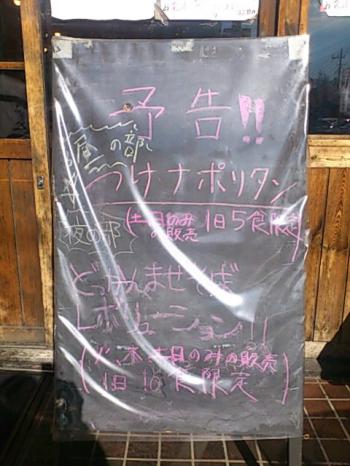 予告!!
昼の部
つけナポリタン
(土日のみの販売 1日5食限定)
夜の部
まぜそば
レボリューション!!
木土日のみの販売
1日10食限定)